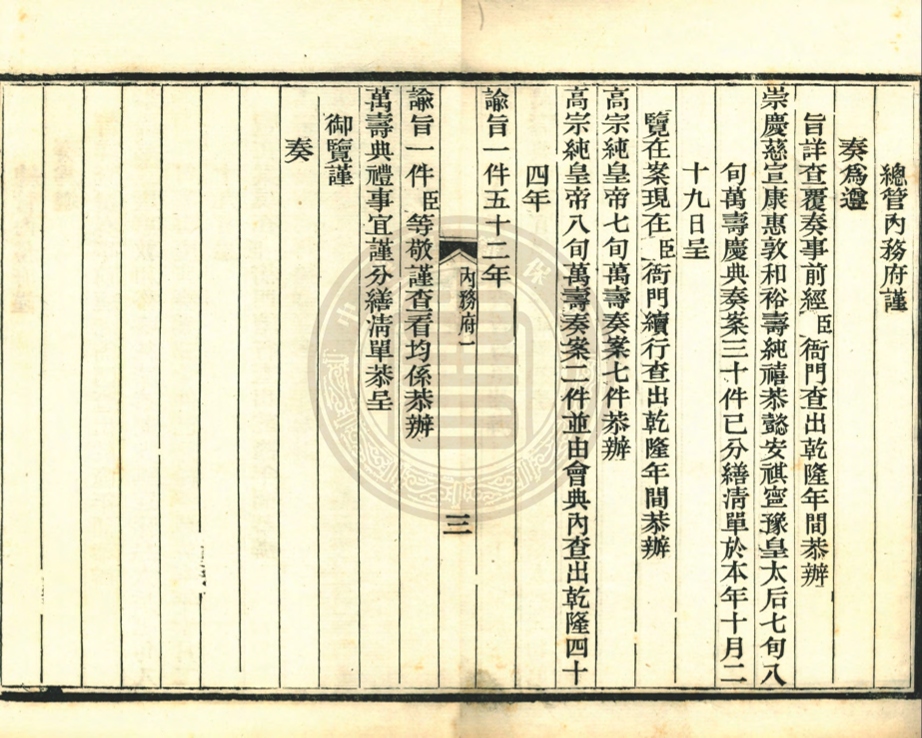 總管內務府謹
奏爲遵
旨詳查覆奏事前經臣衙門查出乾隆年間恭辦
崇慶慈宣康惠敦和裕壽純禧恭懿安祺寧豫皇太后七旬八
旬萬壽慶典奏案三十件已分繕清單於本年十月二
十九日呈
覽在案現在臣衙門續行查出乾隆年間恭辦
高宗純皇帝七旬萬壽奏案七件恭辦
高宗純皇帝八旬萬壽奏案二件並由會典內查出乾隆四十
四年
諭旨一件五十二年
內務府一
三
諭旨一件臣等敬謹查看均係恭辦
萬壽典禮事宜謹分繕清單恭呈
御覽謹
奏